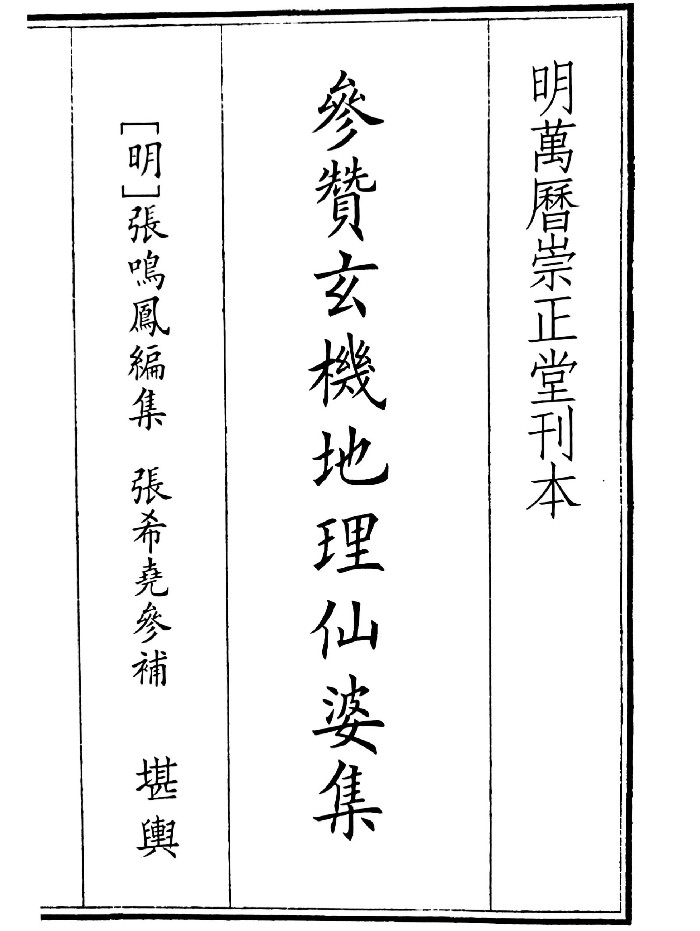 明萬曆崇正堂刊本
參贊玄機地理仙婆集
［明］張鳴鳳編集　張希堯參補　堪輿